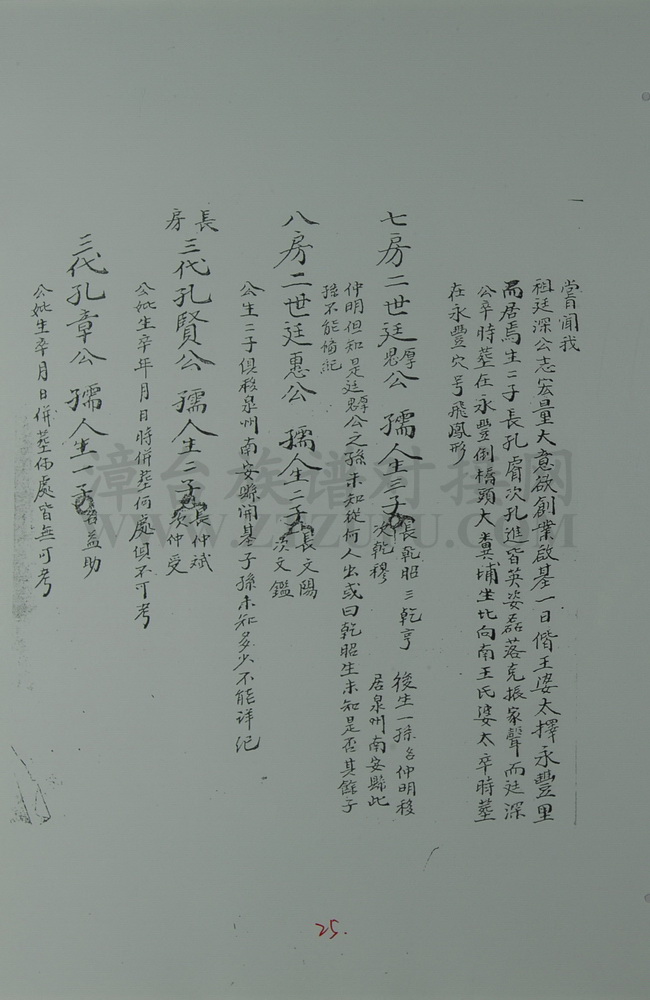 嘗聞我
祖廷深公志宏量大意欲創業啟基一日偕王婆太擇永豐里
而居焉生二子長孔膺次孔進皆英姿磊落克振家聲而廷深
公卒時葬在永豐倒橋頭大糞埔坐北向南王氏婆太卒時葬
在永豐穴号飛鳳形
七房二世廷厚公 孺人生三子長乾昭三乾亨
次乾穆
後生一孫名仲明移
居泉州南安縣此
仲明但知是廷厚公之孫未知從何人出或曰乾昭生未知是否其餘子
孫不能備記
八房二世廷惠公 孺人生二子長文陽
次文鑑
公生二子俱移泉州南安縣開基子孫未知多少不能详记
長
房
三代孔賢公 孺人生二子長仲斌
次仲受
公妣生卒年月日時併葬何處俱不可考
三代孔章公 孺人生一子名益助
公妣生卒月日併葬何處皆無可考
漳台族谱对接网
WWW.ZTZUPU.COM
25.